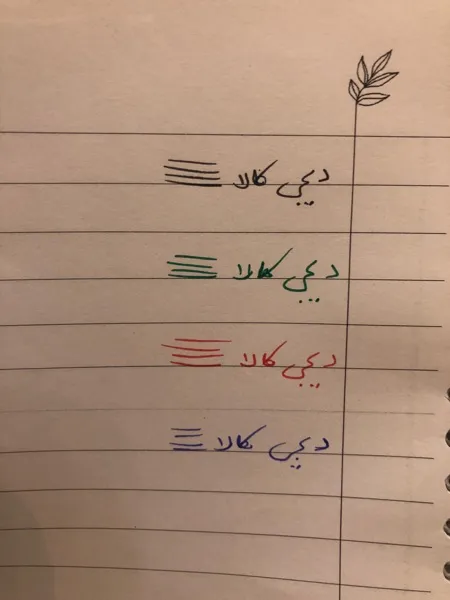 دیجی کالا
دیجی کالا
دیجی کالا
دیجی کالا